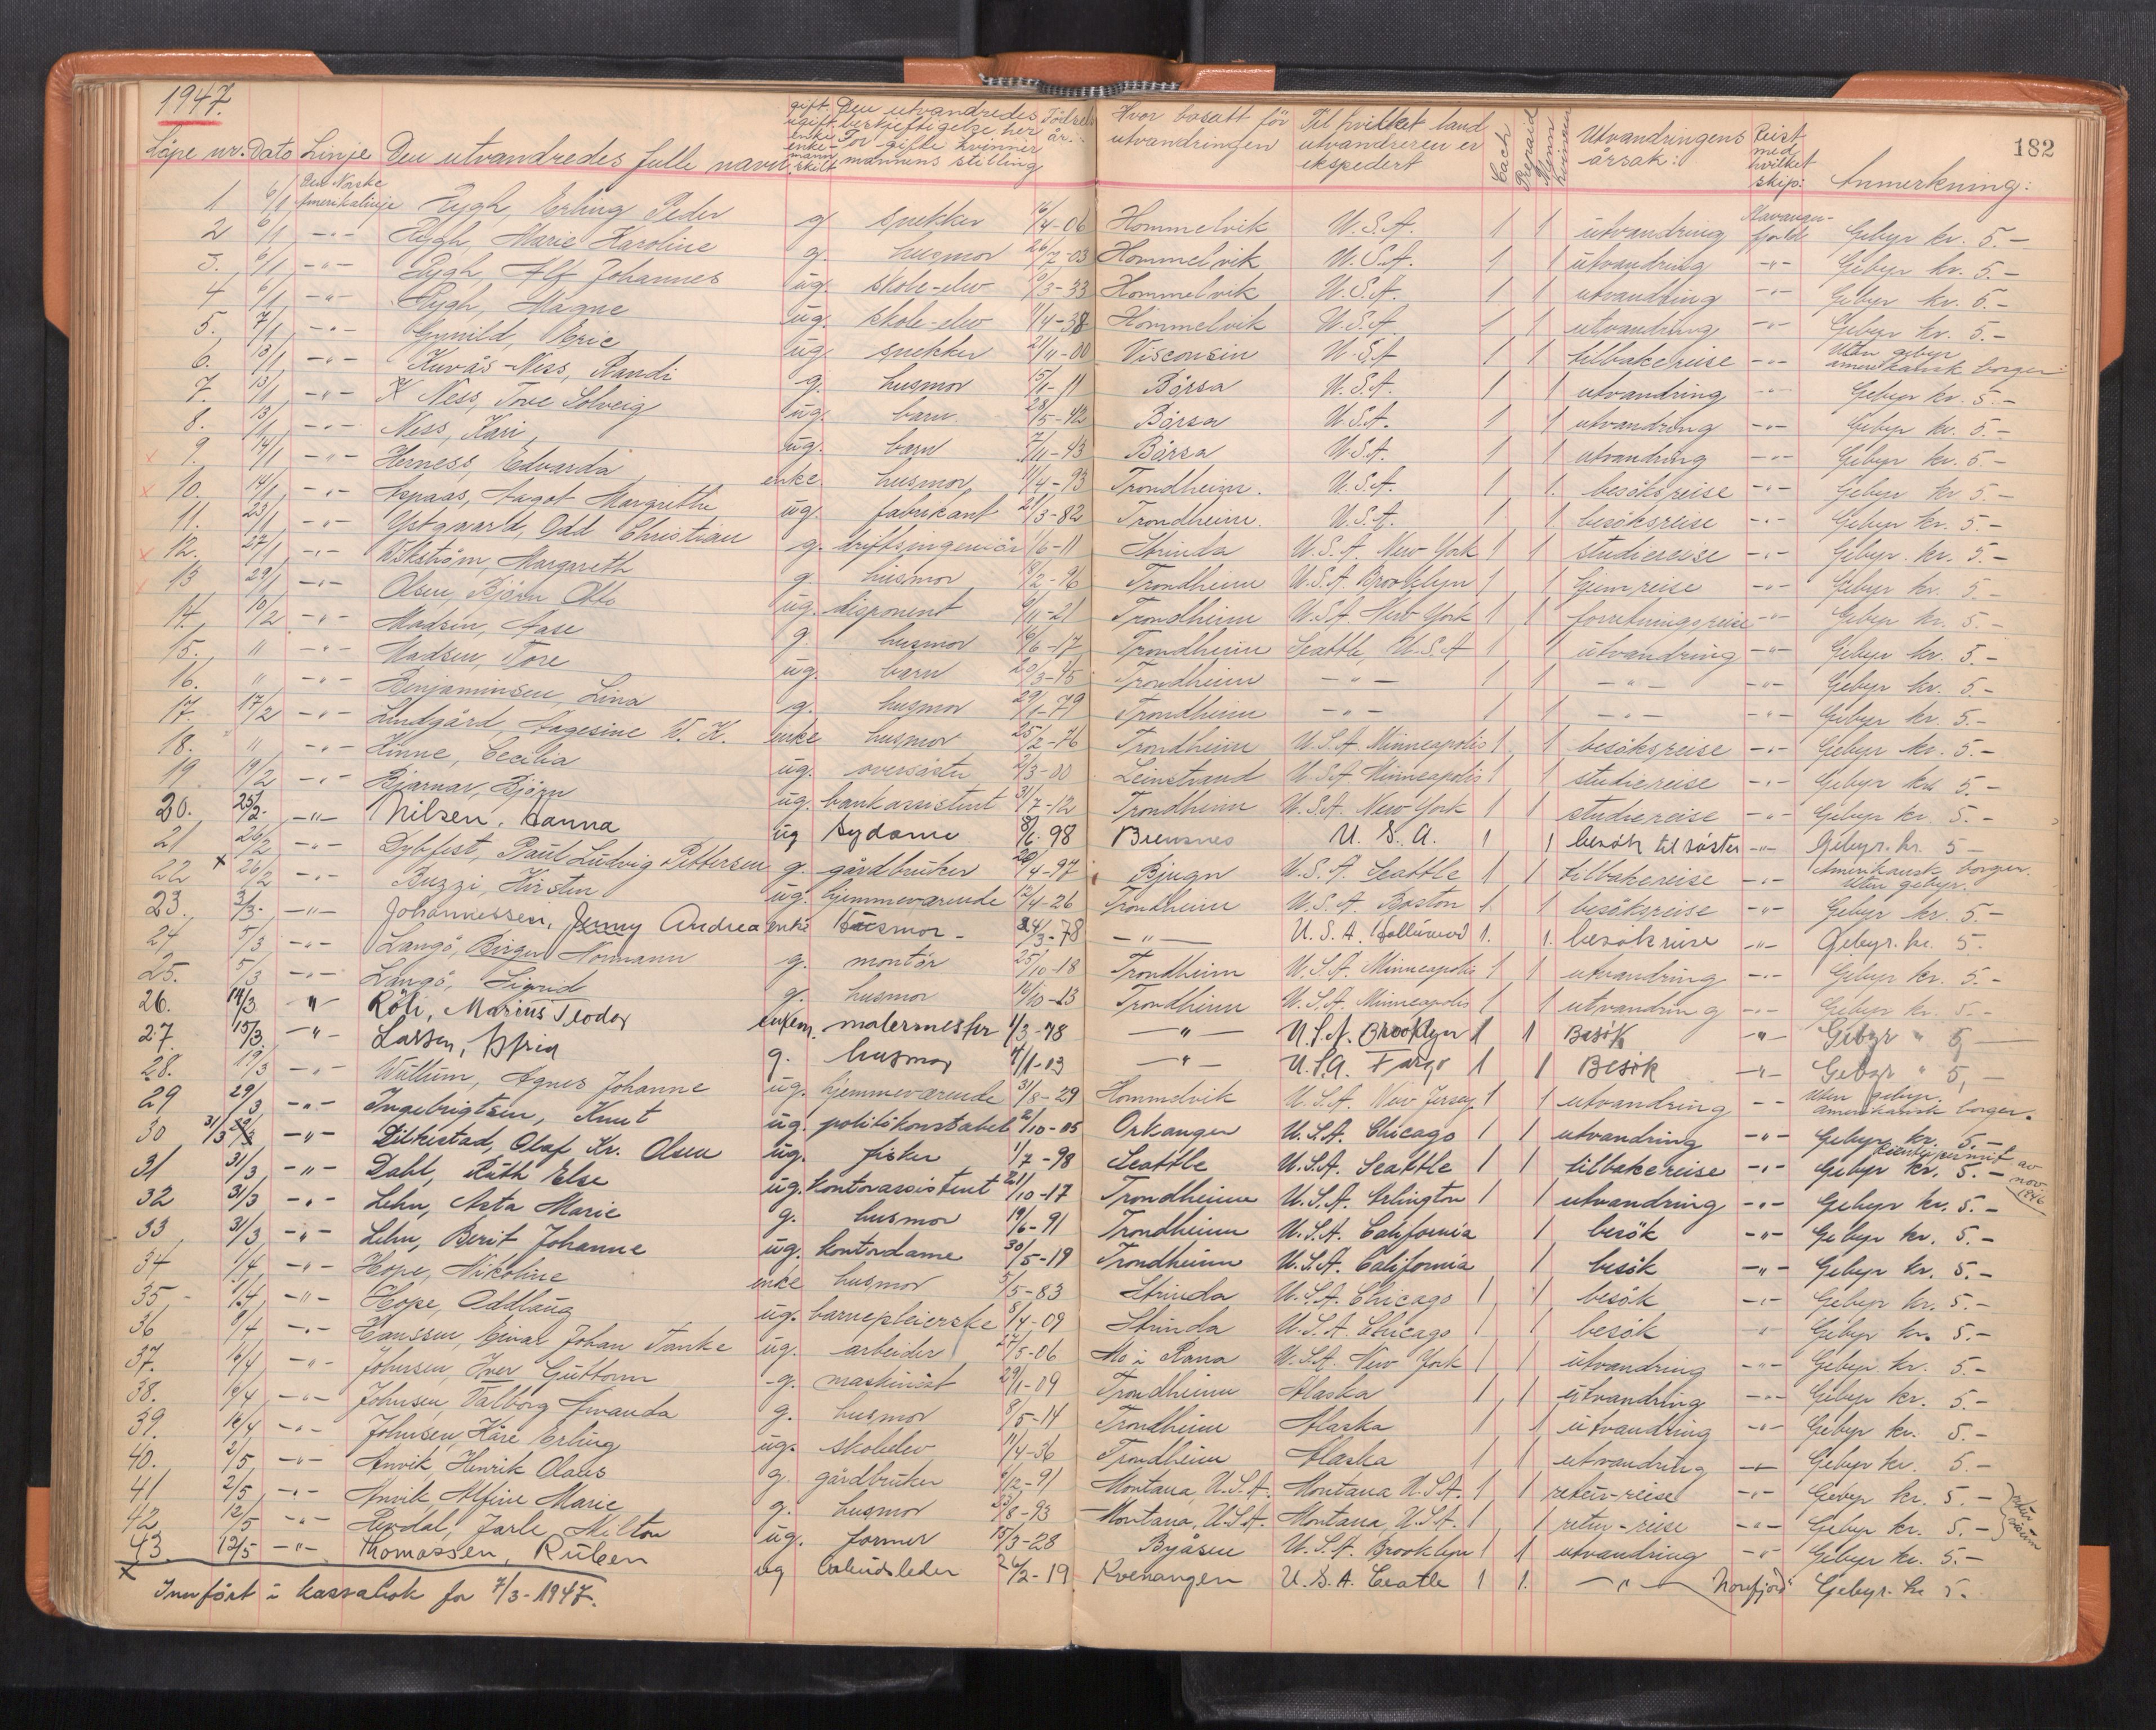 1947.
182
Löpe nr. Dato Linje Den utvandredes fulle navn gift ugift enke enkemann skilt Den utvandredes beskjeftigelse her For gifte kvinner mannens stilling Födselsår: Hvor bosatt för utvandringen Til hvilket land utvandreren er ekspedert Cach Prepaid Menn Kvinner Utvandringens årsak: Reist med hvilket skip: Anmerkning:
1 6/1 Den Norske Amerikalinje Rygh, Erling Peder g snekker 16/4-06 Hommelvik U.S.A. 1 1 utvandring Stavangerfjord Gebyr kr. 5.-
2 6/1 -"- Rygh, Marie Karoline g. husmor 26/7-03 Hommelvik U.S.A. 1 1 utvandring -"- Gebyr kr. 5.-
3. 6/1 -"- Rygh, Alf Johannes ug. skole-elev 9/3-33 Hommelvik U.S.A. 1 1 utvandring -"- Gebyr kr. 5.-
4 6/1 -"- Rygh, Magne ug. skole-elev 11/4-38 Hommelvik U.S.A. 1 1 utvandring -"- Gebyr kr. 5.-
5. 7/1 -"- Gunnild, Eric ug. snekker 21/11-00 Visconsin U.S.A 1 1 tilbakereise -"- Uten gebyr amerikansk borger
6. 13/1 -"- Kuvås-Ness, Randi g. husmor 15/1-11 Börsa U.S.A. 1 1 utvandring -"- Gebyr kr. 5.-
7. 13/1 -"- K Ness, Tove Solveig ug. barn 28/5-42 Börsa U.S.A. 1 1 utvandring -"- Gebyr kr. 5.-
8. 13/1 -"- Ness, Kari ug. barn 7/11-43 Börsa U.S.A. 1 1 utvandring -"- Gebyr kr. 5.-
x 9. 14/1 -"- Herness, Edvarda enke husmor 11/4-93 Trondheim. U.S.A. 1 1. besöksreise -"- Gebyr kr 5.-
x 10. 14/1 -"- Aspaas, Aagot Margrethe ug. fabrikant 21/3-82 Trondheim. U.S.A. 1 1. besöksreise -"- Gebyr kr. 5.-
11. 23/1 -"- Ystgaard, Odd Christian g. driftsingeniör 1/6-11 Strinda U.S.A. New York 1 1 studiereise -"- Gebyr kr. 5-
x 12. 27/1 -"- Wikström, Margareth g. husmor 8/2-96 Trondheim U.S.A. Brooklyn 1 1 hjemreise -"- Gebyr kr. 5-
x 13 29/1 -"- Olsen, Björn Otto ug. disponent 9/11-21 Trondheim U.S.A. New York 1 1 forretningsreise -"- Gebyr kr. 5.-
14. 10/2 -"- Madsen, Aase g. husmor 16/6-17 Trondheim Seattle, U.S.A 1 1 utvandring -"- Gebyr kr. 5.-
15. " -"- Madsen, Tore ug. barn 20/3-45 Trondheim -"- 1 1 -"- -"- Gebyr kr. 5.-
16. " -"- Benjaminsen, Lina g. husmor 29/1-79 Trondheim -"- 1 1 -"- -"- Gebyr kr. 5.-
17. 17/2 -"- Lindgård, Aagesine W. K. enke husmor 25/2-76 Trondheim U.S.A. Minneapolis 1 1 besöksreise -"- Gebyr kr. 5.-
18. " -"- Hinne, Cecilia ug. oversöster 2/3-00 Leinstrand U.S.A. Minneapolis 1 1 studiereise -"- Gebyr kr. 5.-
19 19/2 -"- Bjarnar, Björn ug. bankassistent 31/7-12 Trondheim U.S.A. New York 1 1 studiereise -"- Gebyr kr. 5.-
20. 25/2. -"- Nilsen, Hanna ug sydame 8/6. 98 U.S.A. 1 1 besök til söster -"- Gebyr. kr. 5-
21 26/2 -"- Dybfest, Paul Ludvig Pettersen g. gårdbruker 20/4-97 Bjugn U.S.A. Seattle 1 1 tilbakereise -"- Amerikansk borger. Uten gebyr.
22 x 26/2 -"- Buzzi, Kirsten ug. hjemmeværende 12/4-26 Trondheim U.S.A. Boston 1. 1 besöksreise -"- Gebyr kr. 5.-
23. 3/3. -"- Johannessen, Jenny Andrea enke Husmor - 24/3-78 -"- U.S.A. 1. 1. besöksreise -"- Gebyr. kr. 5.
24 5/3 -"- Langö, Birger Normann g. montör 25/10-18 Trondheim U.S.A. Minneapolis 1 1 utvandring -"- Gebyr kr. 5.-
25. 5/3 -"- Langö, Sigrid g. husmor 16/10-23 Trondheim U.S.A. Minneapolis 1 1 utvandring -"- Gebyr kr. 5.-
26. 14/3 " Röli, Marius Teodor enkem. malermester 1/3-78 -"- U.S.A. Brooklyn 1 1 Besök -"- Gebyr " 5,-
27. 15/3 -"- Lassen, g. husmor 4/1-03 -"- U.S.A. Fargo 1 1 Besök -"- Gebyr " 5,-
28. 19/3 -"- Wullum, Agnes Johanne ug. hjemmeværende 31/8-29 Hommelvik U.S.A. New Jersey 1 1 utvandring -"- Uten gebyr. amerikansk borger.
29 29/3 -"- Ingebrigtsen, Knut ug. politikonstabel 2/10-05 Orkanger U.S.A. Chicago 1 1 utvandring -"- Gebyr kr. 5.-
30 31/3 -"- Dilkestad, Olaf Kr. Olsen ug. fisker 1/7-98 Seattle U.S.A. Seattle 1 1 tilbakereise -"- Gebyr kr. 5.- Reentrypermit av nov. 1946
31 31/3 -"- Dahl, Ruth Else ug. kontorassistent 21/10-17 Trondheim U.S.A. Arlington 1 1 utvandring -"- Gebyr kr. 5.-
32 31/3 -"- Lehn, Asta Marie g. husmor 19/6-91 Trondheim U.S.A. California 1 besök -"- Gebyr kr. 5.-
33 31/3 -"- Lehn, Berit Johanne ug. kontordame 30/5-19 Trondheim U.S.A. California 1 besök -"- Gebyr kr. 5.-
34 1/4 -"- Hope, Nikoline enke husmor 5/5-83 Strinda U.S.A. Chicago 1 1 besök -"- Gebyr kr. 5.-
35 - 1/4 -"- Hope, Oddlaug ug. barnepleierske 8/4-09 Strinda U.S.A. Chicago 1 1 besök " Gebyr kr. 5.-
36 8/4 -"- Hanssen, Einar Johan Tanke ug. arbeider 27/5-06 Mo i Rana U.S.A. New York 1 1 utvandring -"- Gebyr kr. 5.-
37. 16/4 -"- Johnsen, Iver Guttorm g. maskinist 29/1-09 Trondheim Alaska 1 1 utvandring -"- Gebyr kr. 5.-
38. 16/4 -"- Johnsen, Valborg Amanda g. husmor 8/5-14 Trondheim Alaska 1 1 utvandring -"- Gebyr kr. 5.-
39. 16/4 -"- Johnsen, Kåre Erling ug. skoleelev 11/4-36 Trondheim Alaska 1 1 utvandring -"- Gebyr kr. 5.-
40. 2/5 -"- Anvik, Henrik Olaus g. gårdbruker 6/12-91 Montana, U.S.A. Montana U.S.A. 1 1 retur-reise -"- Gebyr kr. 5.-
41 2/5 -"- Anvik, Alfine Marie g. husmor 23/8-93 Montana, U.S.A. Montana, U.S.A. 1 1 retur-reise -"- Gebyr kr. 5.-
42 12/5 -"- Jarle Milton ug. former 15/3-28 Byåsen U.S.A. Brooklyn 1 1 utvandring -"- Gebyr kr. 5.-
43. 12/5 -"- Thomassen, Ruben ug arbeidsleder 26/2-19 Kvenangen U.S.A. Ceatle 1 1. -"- Norefjord Gebyr. kr 5.-
x Innfört i kassabok for 7/3-1947.